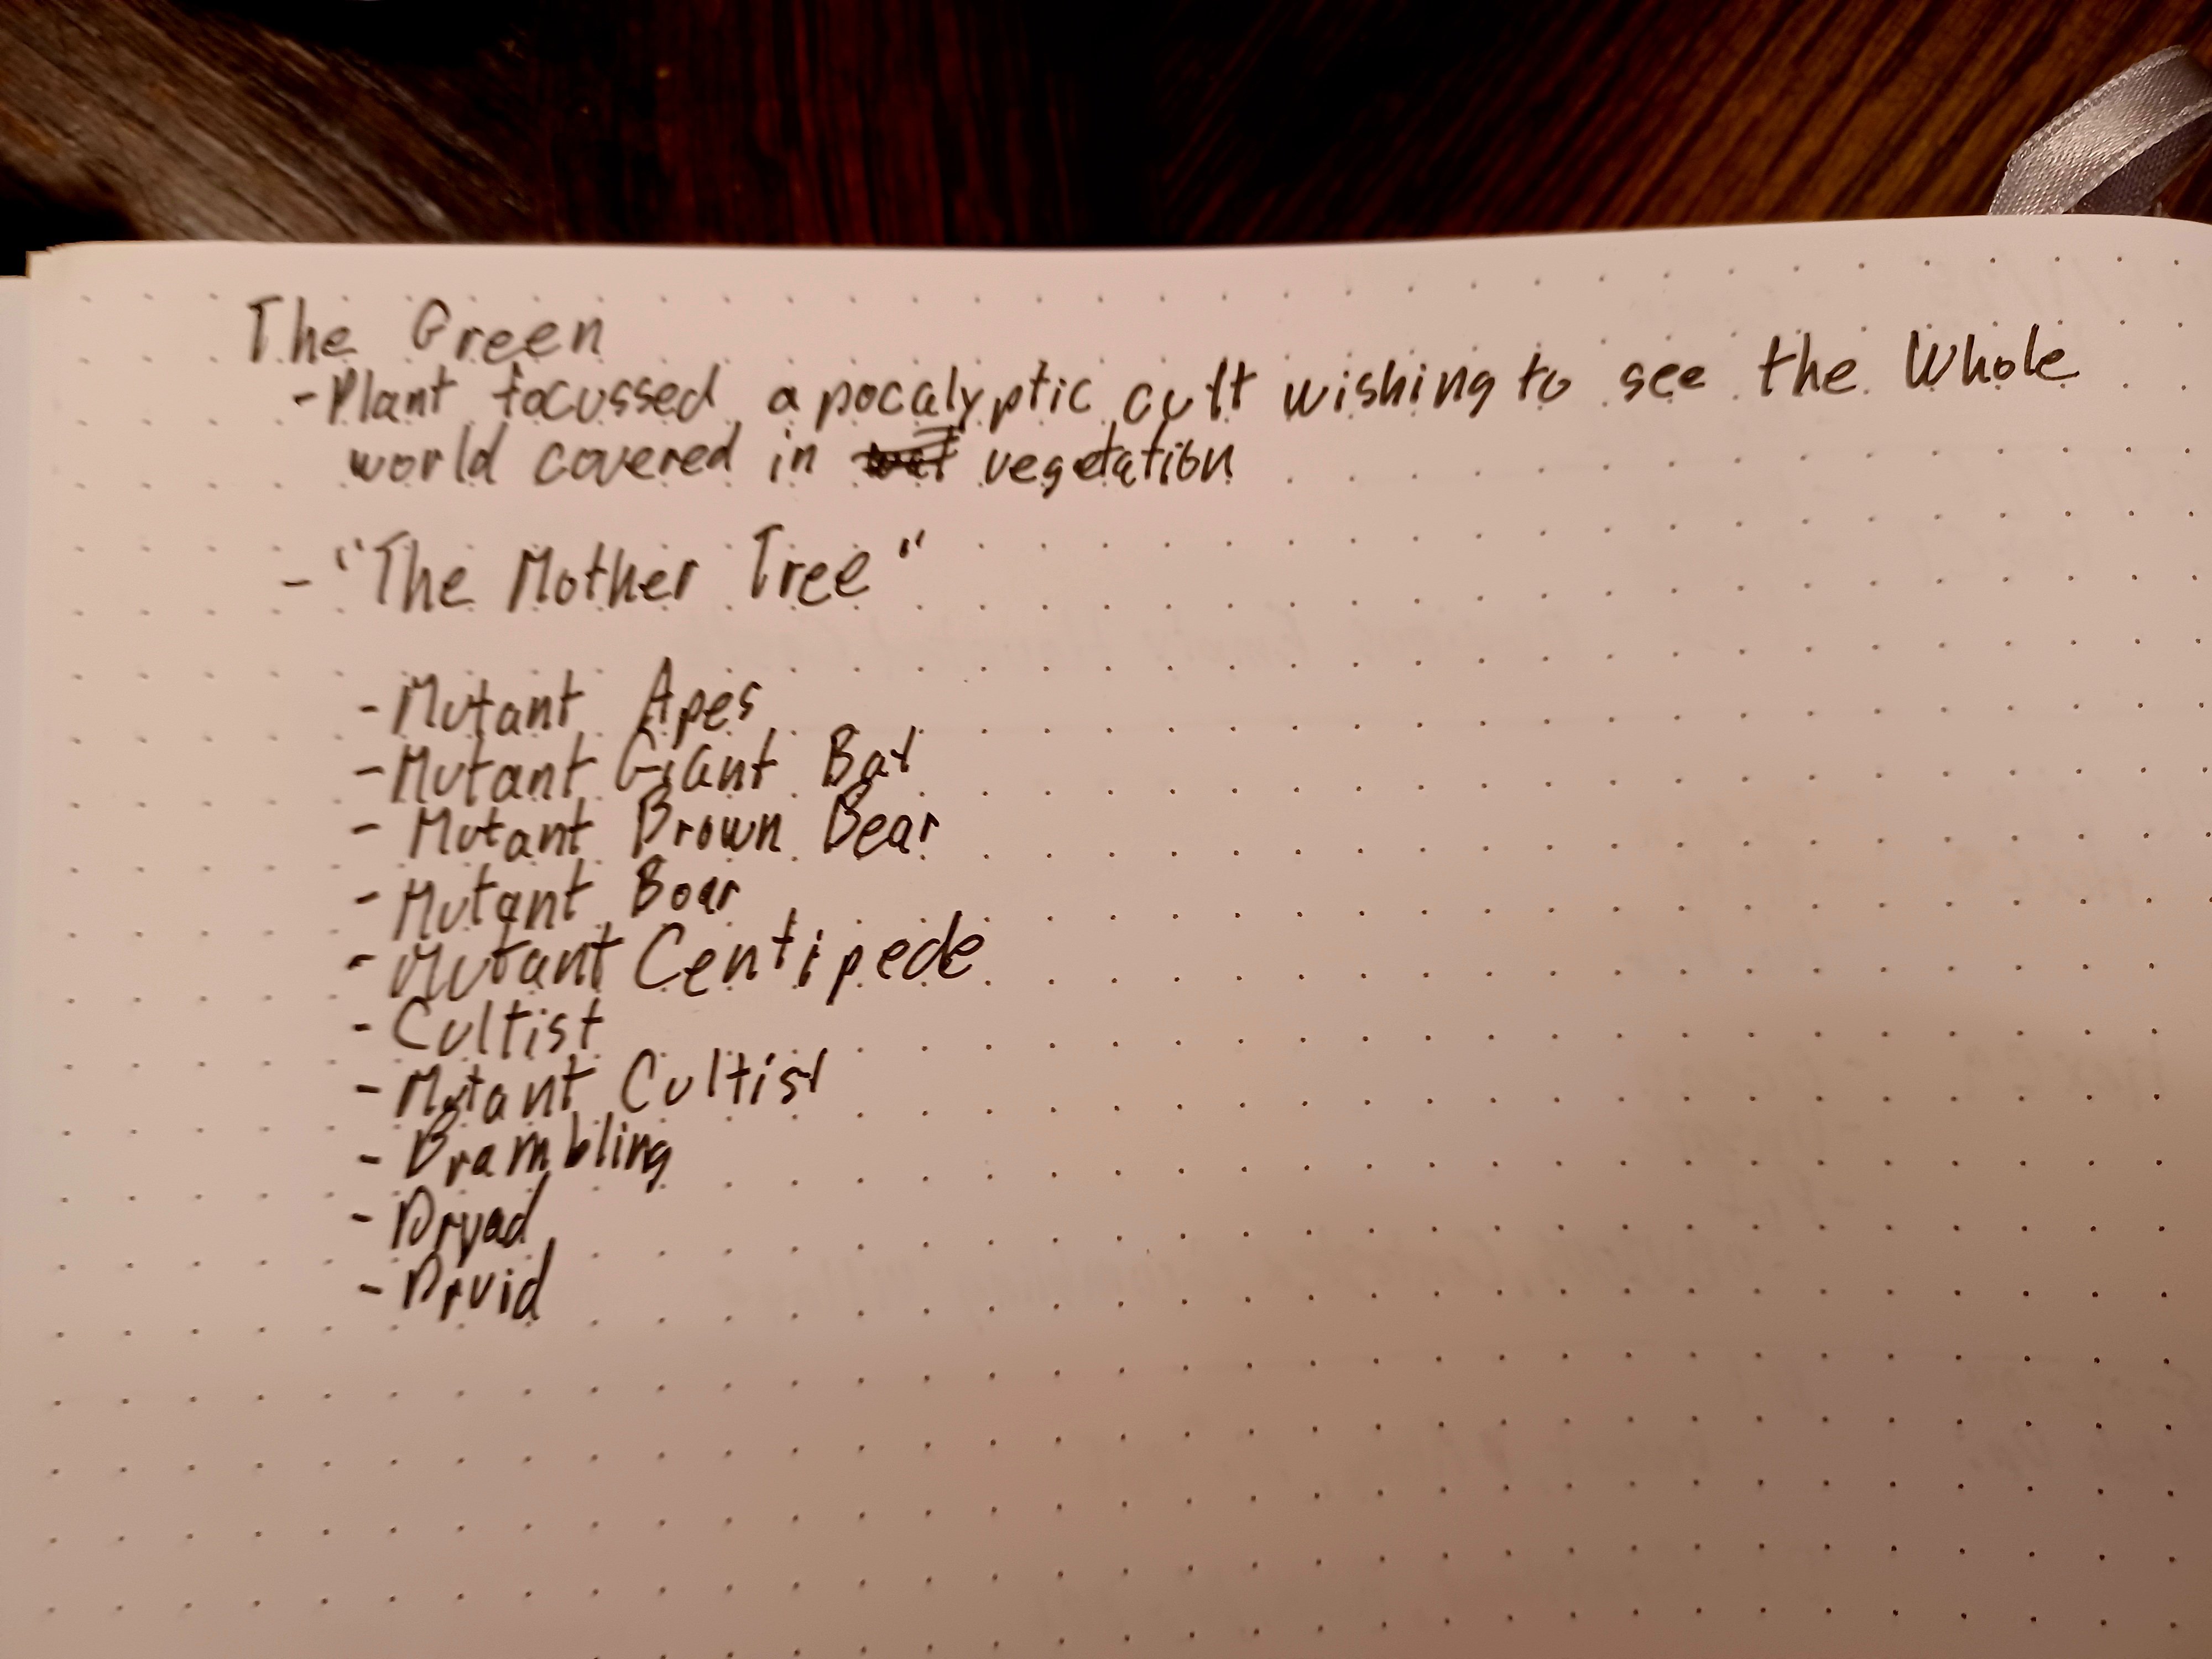 The Green
- Plant focussed apocalyptic cult wishing to see the Whole
world covered in vegetation
- "The Mother Tree"
- Mutant Apes
- Mutant Giant Bat
- Mutant Brown Bear
- Mutant Boar
- Mutant Centipede
- Cultist
- Mutant Cultist
- Brambling
- Dryad
- Druid